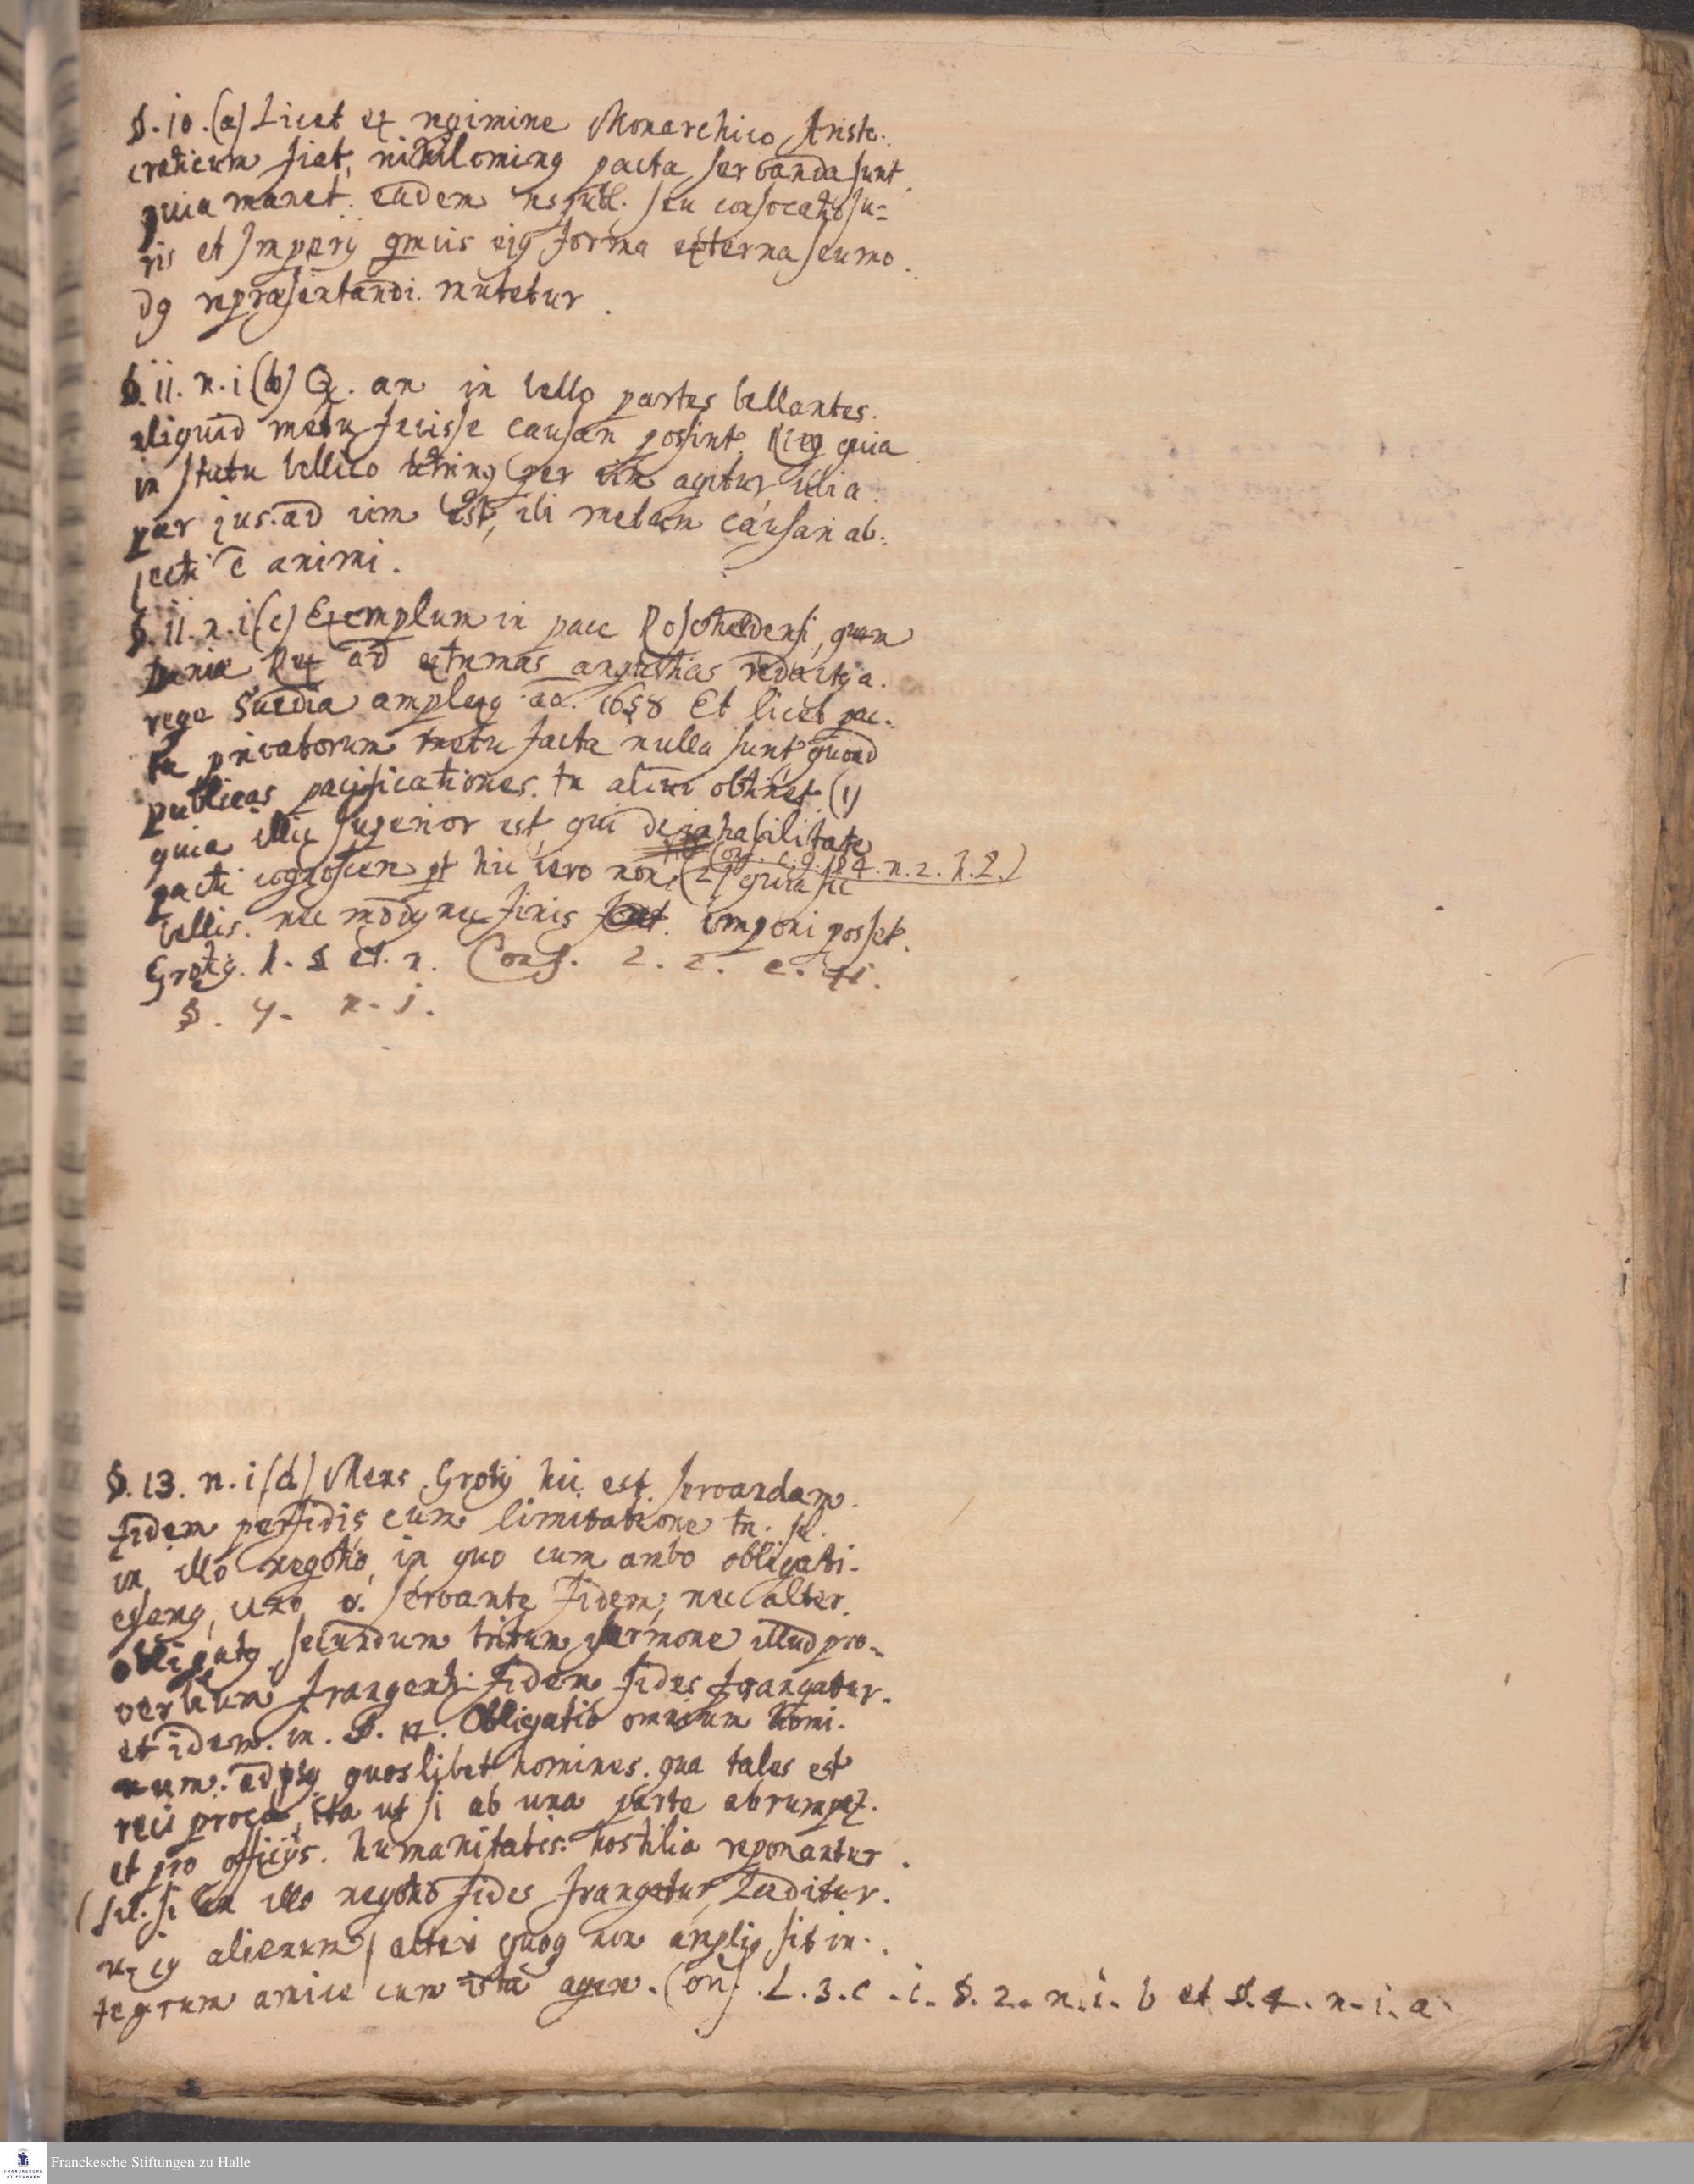 §. 10. (a) Licet ex regimine Monarchico Aristo-
craticum fiat, nihilominus pacta servanda sunt
quia manet. eadem respubl. seu consociatio Ju=
ris et Imperij qmvis ejus forma externa seu mo
dus repræsentandi. mutetur.
§. 11. n. i (b) Q. an in bello partes bellantes.
aliquid metu fecisse causari possint. Rneg quia
in statu bellico per vim agitur, ubi a.
par jus. ad vim est, ibi metum causari ab-
jecti e animi.
§. 11. n. i (c) Exemplum in pace Roschildensi, quam
Daniæ Rex ad extremas angustias redactus a.
rege Suedia amplexus. ao. 1658 Et licet pac-
ta privatorum metu facta nulla sunt quoad
publicas pacificationes. tn aliud obtinet. (1)
quia illic superior est, qui de inhabilitate
Conf. c. 9. § 4. n. 2. h. 2.)
pacti cognoscere pt hic vero non, (2) quia sic
bellis. nec modus nec finis imponi posset.
Grotius. h. §. et. n. Conf. 2. 2. c. 11.
§. 7. n. i.
§. 13. n. i (d) Mens Grotij hic est. servandam.
fidem perfidis, cum limitatione tn. sc.
in illo negotio, in quo cum ambo obligati-
essent, uno servante fidem, nec alter.
obligatus. secundum tritum sermone illud pro-
verbium frangenti fidem fides frangatur.
et idem. in. §. 14. Obligatio omnium homi-
num. quoslibet homines. qua tales est
reciproca, ita ut si ab una parte abrumpat.
et pro officijs. humanitatis. hostilia reponantur.
(scil. si in illo negotio fides frangatur, læditur.
alienum) alteri quoque non amplius sit in-
tegrum amice cum ista agere. Conf. L. 3. c. i. §. 2. n. i. b et §. 4. n. i. a.
Franckesche Stiftungen zu Halle
FRANCKESCHE
STIFTUNGEN